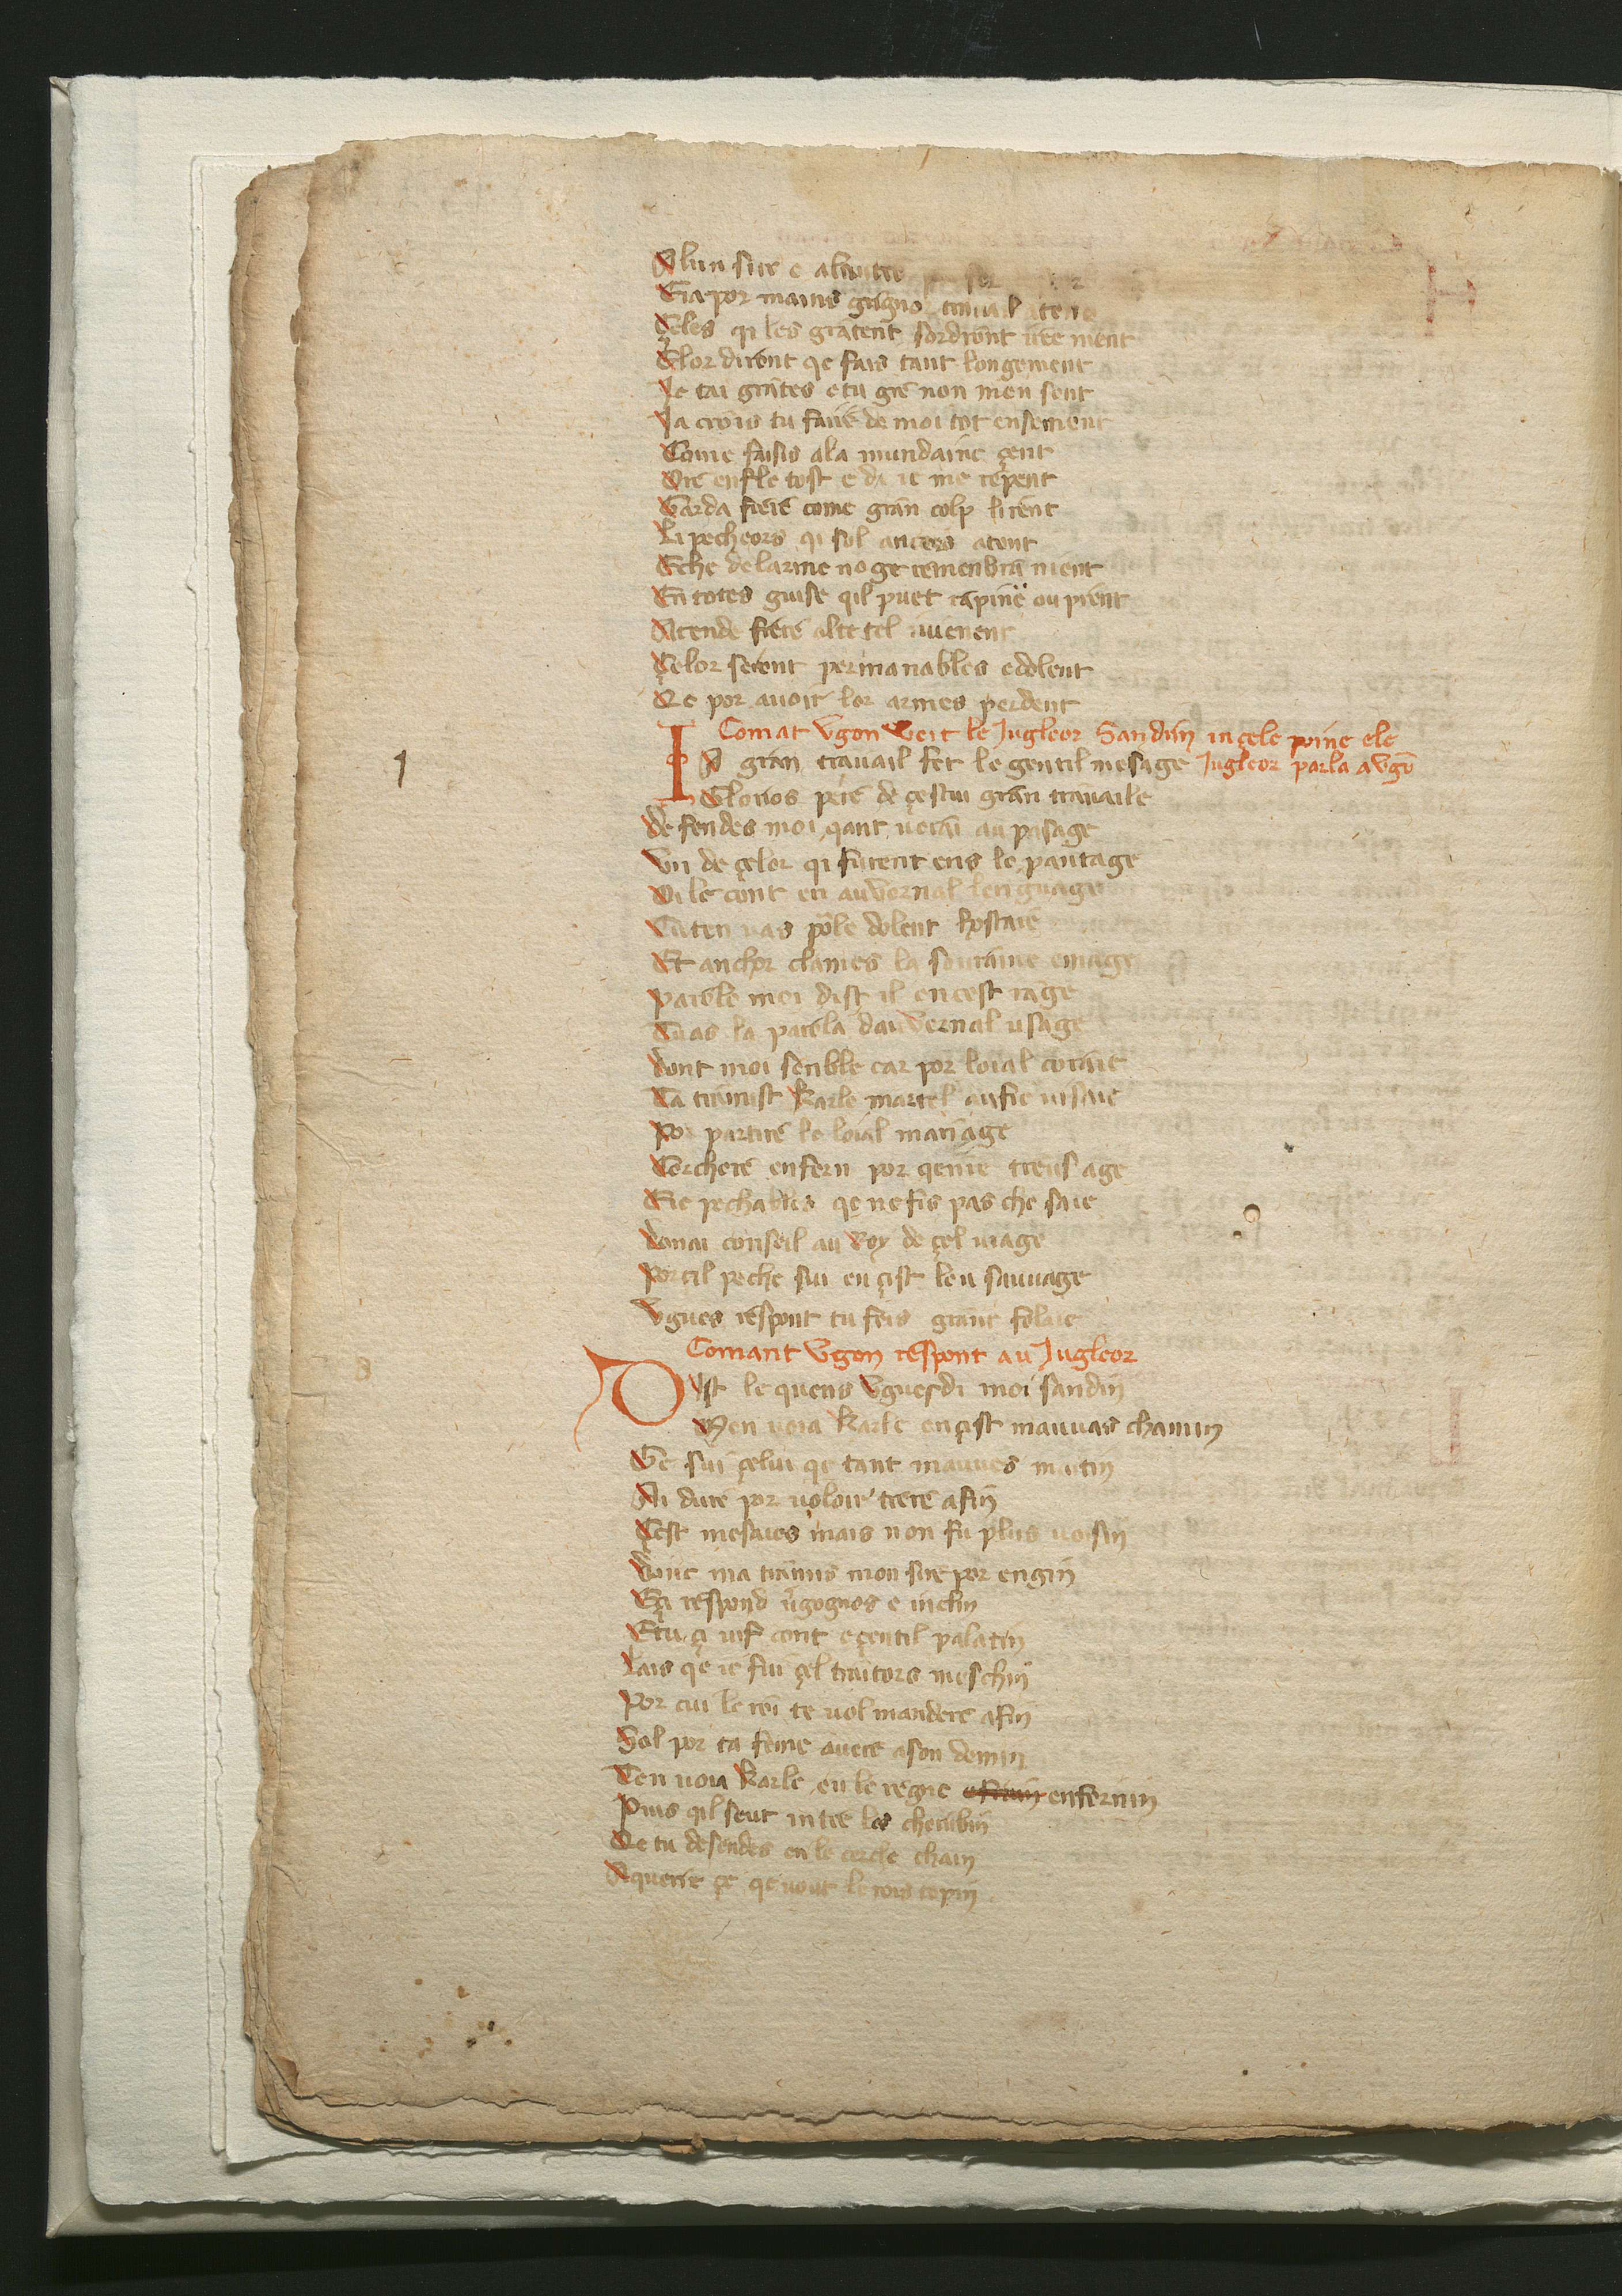 Alun sire e alautre
Era por mains gaagno travail atent
Celes qi les gratent sordiront itee ment
E lor diront qe fais tant longement
Je tai grates e tu gre non men sent
Ja crois tu faire de moi tot ensement
Come faisis ala mundaine çent
Ore enfle tost e di ie me repent
Garda frere come gran colp lirent
Li pecheors qi sol ancois atent
Eche delarme no ge remenbra nient
En totes guise qil puet rapine ou prent
Atende frere alte tel iuvenent
Çelor seront permanables e dolent
Qe por avoir lor armes perdent
Comat Ugon veit le Jugleor Sandin in çele poine ele
IN gran travail fer le gentil mesage Jugleor parla a Ugō
Glorios pere de çestui gran travaile
Defendes moi qant verai au pasage
Un de çelor qi furent ens le pantage
Vi le cont en auvernal lenguage
Tu ten vas por le dolent hostaie
Et anchor clames la soutaine emage
Parole moi dist il en cest rage
Tu as la parola dauvernal usage
Dont moi senble car por loial coraie
Ta tramist Karle martel au fie visaie
Por partire le loial mariage
Cerchere enfern por qerire treusage
E ie pechables qe ne fis pas che saie
Donai conseil au Roy de çel viage
Por cil peche sui en cist leu sauvage
Ugues respont tu feis grant folaie
Comant Ugon respont au Jugleor
Dist le quens Ugues di moi sandin
Men voia Karle en cist mauvas chamin
Ge sui çelui qe tant mauves matin
Ai dure por voloir trere afin
Cest mesaies mais non fu plus voisin
Donc ma tramis mon sire por engin
E çi respond vgognos e inclin
E tu çi vif cont e çentil palatin
Lais qe ie fui çel traitors meschin
Por cui le roi te vol mandere afin
Sol por ta feme avere a son domin
Ten voia Karle en le regne enfernin
Puis qil seut intre les cherubin
Qe tu desendes en le cercle chain
A querir çe qe vout le rois topin